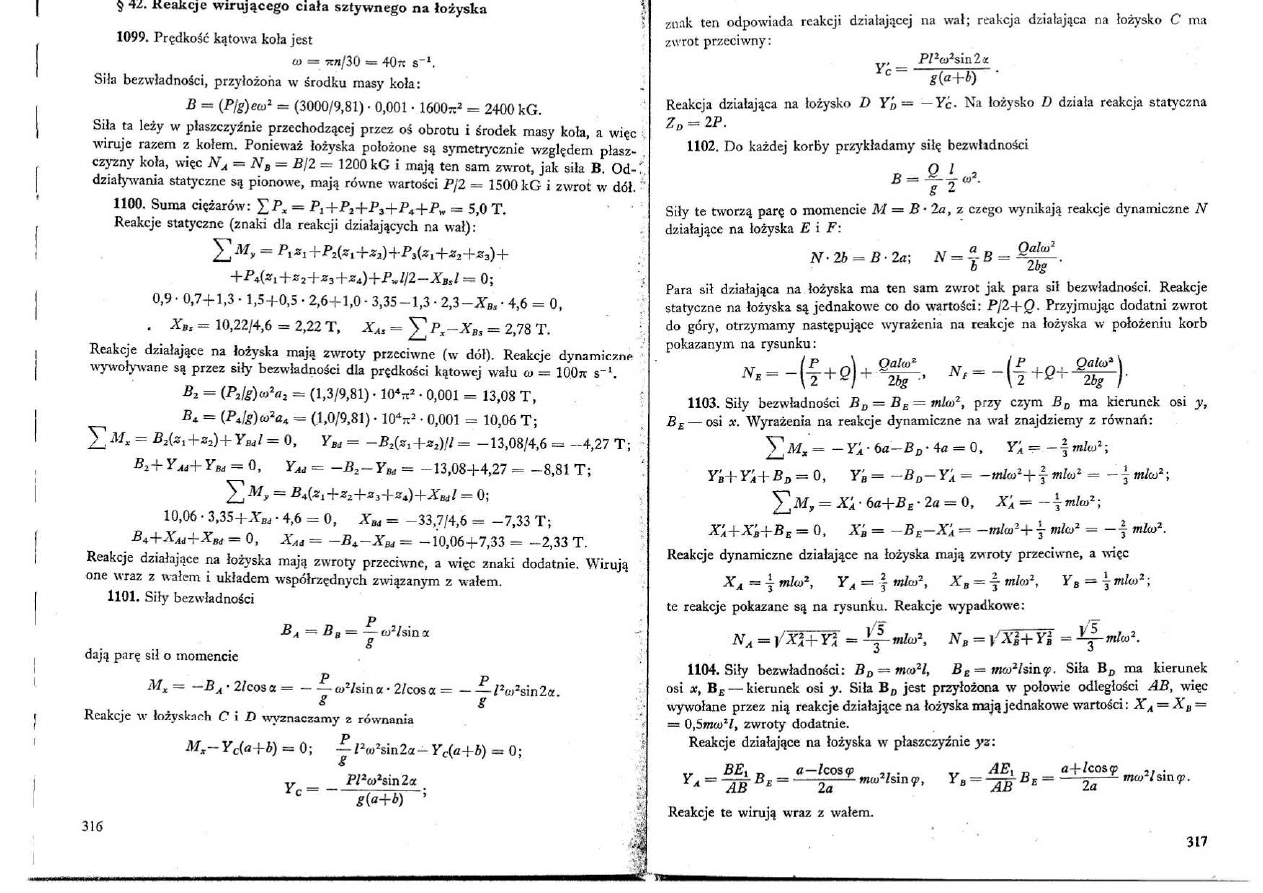 § 42. Reakcje wirującego ciała sztywnego na łożyska
1099. Prędkość kątowa koła jest
ω = πn/30 = 40π s⁻¹.
Siła bezwładności, przyłożona w środku masy koła:
B = (P/g)eω² = (3000/9,81) · 0,001 · 1600π² = 2400 kG.
Siła ta leży w płaszczyźnie przechodzącej przez oś obrotu i środek masy koła, a więc
wiruje razem z kołem. Ponieważ łożyska położone są symetrycznie względem płasz-
czyzny koła, więc N_A = N_B = B/2 = 1200 kG i mają ten sam zwrot, jak siła B. Od-
działywania statyczne są pionowe, mają równe wartości P/2 = 1500 kG i zwrot w dół.
1100. Suma ciężarów: ∑P_x = P₁+P₂+P₃+P₄+P_w = 5,0 T.
Reakcje statyczne (znaki dla reakcji działających na wał):
∑M_y = P₁z₁+P₂(z₁+z₂)+P₃(z₁+z₂+z₃)+
+P₄(z₁+z₂+z₃+z₄)+P_w l/2−X_Bs l = 0;
0,9 · 0,7+1,3 · 1,5+0,5 · 2,6+1,0 · 3,35−1,3 · 2,3−X_Bs · 4,6 = 0,
X_Bs = 10,22/4,6 = 2,22 T, X_As = ∑P_x−X_Bs = 2,78 T.
Reakcje działające na łożyska mają zwroty przeciwne (w dół). Reakcje dynamiczne
wywoływane są przez siły bezwładności dla prędkości kątowej wału ω = 100π s⁻¹.
B₂ = (P₂/g)ω²a₂ = (1,3/9,81) · 10⁴π² · 0,001 = 13,08 T,
B₄ = (P₄/g)ω²a₄ = (1,0/9,81) · 10⁴π² · 0,001 = 10,06 T;
∑M_x = B₂(z₁+z₂)+Y_Bd l = 0, Y_Bd = −B₂(z₁+z₂)/l = −13,08/4,6 = −4,27 T;
B₂+Y_Ad+Y_Bd = 0, Y_Ad = −B₂−Y_Bd = −13,08+4,27 = −8,81 T;
∑M_y = B₄(z₁+z₂+z₃+z₄)+X_Bd l = 0;
10,06 · 3,35+X_Bd · 4,6 = 0, X_Bd = −33,7/4,6 = −7,33 T;
B₄+X_Ad+X_Bd = 0, X_Ad = −B₄−X_Bd = −10,06+7,33 = −2,33 T.
Reakcje działające na łożyska mają zwroty przeciwne, a więc znaki dodatnie. Wirują
one wraz z wałem i układem współrzędnych związanym z wałem.
1101. Siły bezwładności
B_A = B_B = P/g ω²l sin α
dają parę sił o momencie
M_x = −B_A · 2l cos α = − P/g ω²l sin α · 2l cos α = − P/g l²ω² sin 2α.
Reakcje w łożyskach C i D wyznaczamy z równania
M_x−Y_C(a+b) = 0; P/g l²ω² sin 2α − Y_C(a+b) = 0;
Y_C = − Pl²ω² sin 2α / g(a+b) ;
316
znak ten odpowiada reakcji działającej na wał; reakcja działająca na łożysko C ma
zwrot przeciwny:
Y'_C = Pl²ω² sin 2α / g(a+b) .
Reakcja działająca na łożysko D Y'_D = −Y'_C. Na łożysko D działa reakcja statyczna
Z_D = 2P.
1102. Do każdej korby przykładamy siłę bezwładności
B = Q/g l/2 ω².
Siły te tworzą parę o momencie M = B · 2a, z czego wynikają reakcje dynamiczne N
działające na łożyska E i F:
N · 2b = B · 2a; N = a/b B = Qalω²/2bg .
Para sił działająca na łożyska ma ten sam zwrot jak para sił bezwładności. Reakcje
statyczne na łożyska są jednakowe co do wartości: P/2+Q. Przyjmując dodatni zwrot
do góry, otrzymamy następujące wyrażenia na reakcje na łożyska w położeniu korb
pokazanym na rysunku:
N_E = −(P/2 + Q) + Qalω²/2bg , N_F = −(P/2 + Q + Qalω²/2bg).
1103. Siły bezwładności B_D = B_E = mlω², przy czym B_D ma kierunek osi y,
B_E — osi x. Wyrażenia na reakcje dynamiczne na wał znajdziemy z równań:
∑M_x = −Y'_A · 6a−B_D · 4a = 0, Y'_A = −2/3 mlω²;
Y'_B+Y'_A+B_D = 0, Y'_B = −B_D−Y'_A = −mlω²+2/3 mlω² = −1/3 mlω²;
∑M_y = X'_A · 6a+B_E · 2a = 0, X'_A = −1/3 mlω²;
X'_A+X'_B+B_E = 0, X'_B = −B_E−X'_A = −mlω²+1/3 mlω² = −2/3 mlω².
Reakcje dynamiczne działające na łożyska mają zwroty przeciwne, a więc
X_A = 1/3 mlω², Y_A = 2/3 mlω², X_B = 2/3 mlω², Y_B = 1/3 mlω²;
te reakcje pokazane są na rysunku. Reakcje wypadkowe:
N_A = √(X²_A+Y²_A) = √5/3 mlω², N_B = √(X²_B+Y²_B) = √5/3 mlω².
1104. Siły bezwładności: B_D = mω²l, B_E = mω²l sin φ. Siła B_D ma kierunek
osi x, B_E — kierunek osi y. Siła B_D jest przyłożona w połowie odległości AB, więc
wywołane przez nią reakcje działające na łożyska mają jednakowe wartości: X_A = X_B =
= 0,5mω²l, zwroty dodatnie.
Reakcje działające na łożyska w płaszczyźnie yz:
Y_A = BE₁/AB B_E = a−l cos φ/2a mω²l sin φ, Y_B = AE₁/AB B_E = a+l cos φ/2a mω²l sin φ.
Reakcje te wirują wraz z wałem.
317